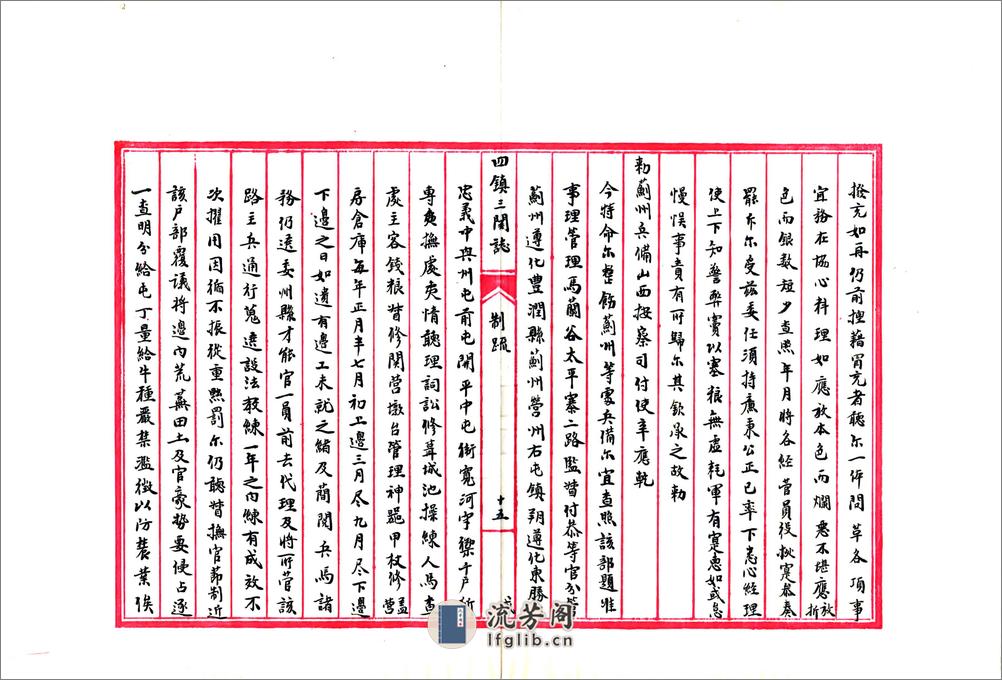 撥充如再仍前揑藉冒充者聽尔一併問草各項事
宜務在協心料理如應放本色而爛惡不堪應放折
色而銀数短少查照年月將各經管員役秋寔叅奏
罷斥尔受兹委任須持廉秉公正己率下悉心經理
使上下知警弊竇以塞粮無虚耗軍有寔惠如或怠
慢悞事責有所歸尔其欽承之故勅
勅薊州兵備山西按察司付使辛應乾
今特命尔整飭薊州等處兵備尔宜查照該部題准
事理管理馬蘭谷太平寨二路監督付叅等官分管
薊州遵化豐潤縣薊州營州右屯鎮朔遵化東勝
四鎮三関誌
制疏
十五
忠義中興州屯前屯開平中屯衛寛河守禦千户所
專責撫處夷情聽理詞訟修葺城池操練人馬查
處主客錢粮督修関营墩台管理神器甲杖修盖营
房倉庫每年正月半七月初上邊三月尽九月尽下邊
下邊之日如遺有邊工未就之緒及蕳閱兵馬諸
務仍遴委州縣才能官一員前去代理及將所管該
路主兵通行蒐選設法教練一年之内練有成效不
次擢用因循不振從重㸃罰尔仍聽督撫官節制近
該户部覆議將邊内荒蕪田土及官豪勢要侵占逐
一查明分給屯丁量給牛種嚴禁濫徴以防農業俟
流芳阁
lfglib.cn